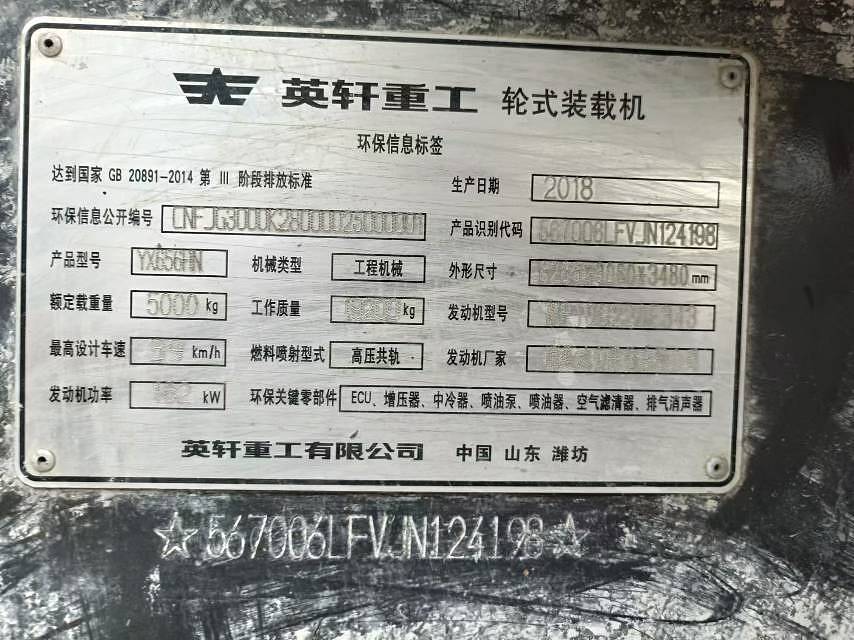 英轩重工 轮式装载机
环保信息标签
达到国家 GB 20891-2014 第 III 阶段排放标准
生产日期 2018
环保信息公开编号
产品识别代码 567006LFVJN124198
产品型号 YX656HN 机械类型 工程机械
外形尺寸 3480mm
额定载重量 5000 kg 工作质量 kg
发动机型号
最高设计车速 km/h 燃料喷射型式 高压共轨
发动机厂家
发动机功率 kW 环保关键零部件 ECU、增压器、中冷器、喷油泵、喷油器、空气滤清器、排气消声器
英轩重工有限公司 中国 山东 潍坊
☆567006LFVJN124198☆